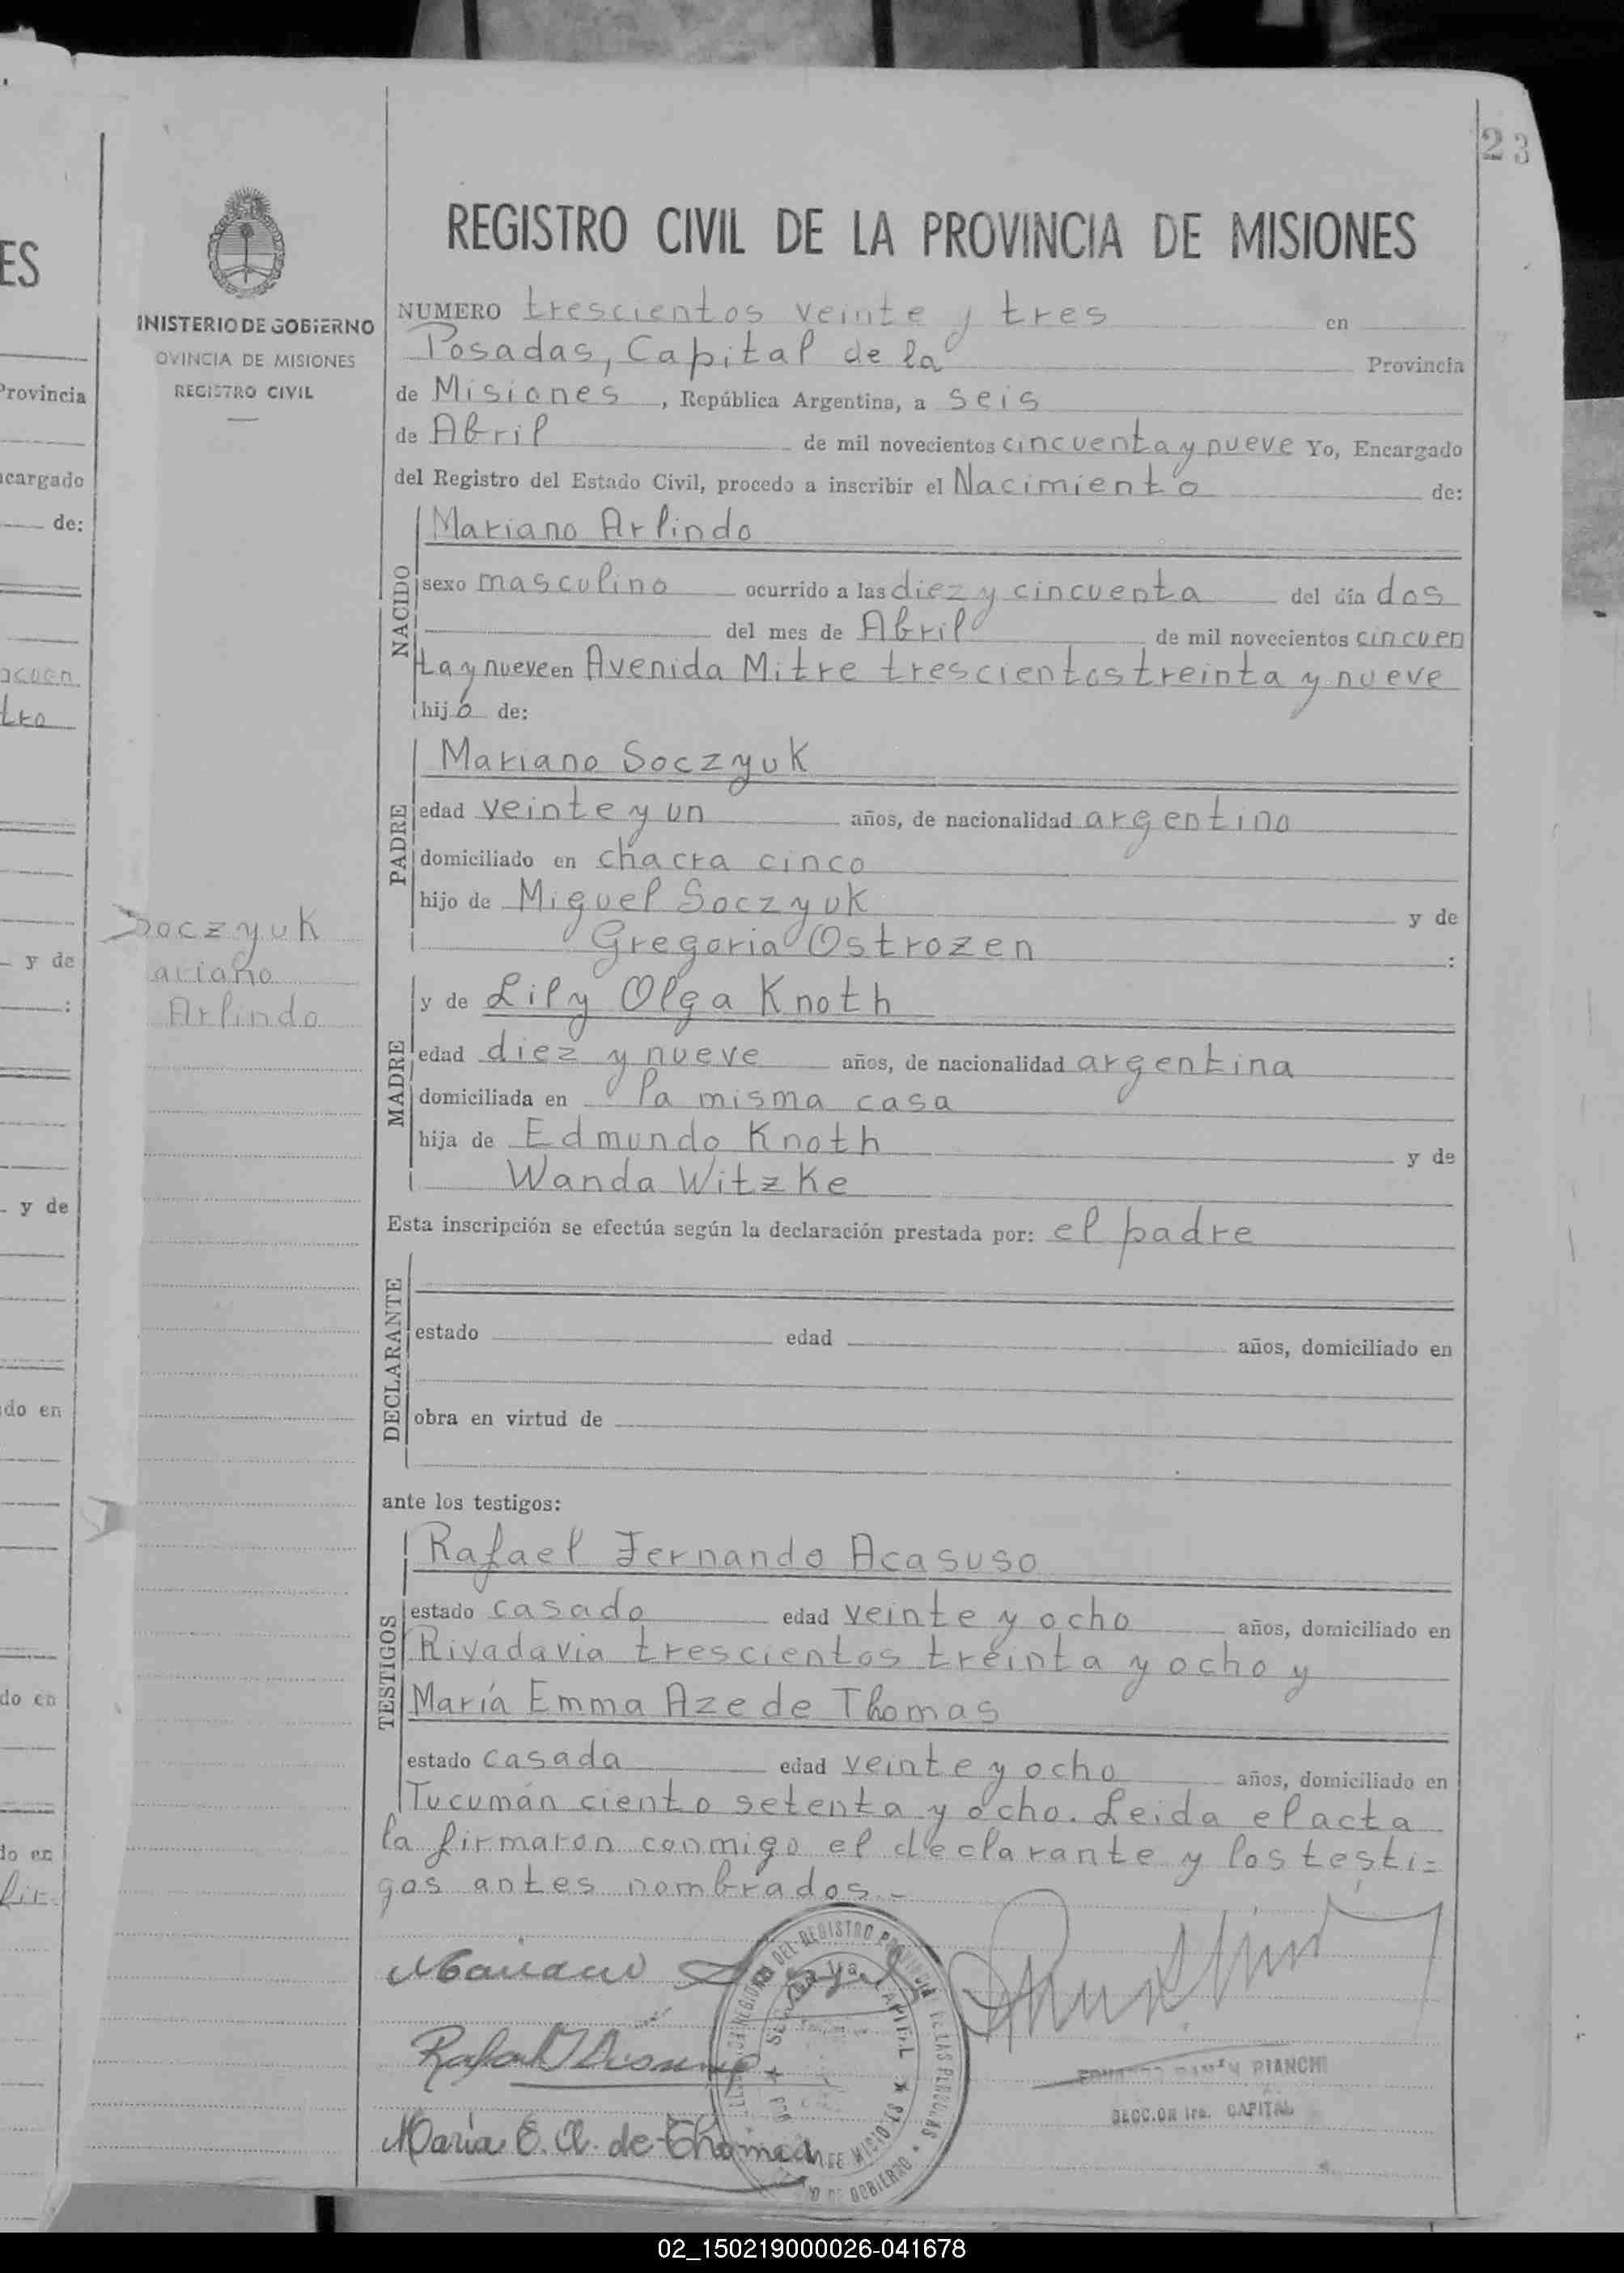 23
INISTERIO DE GOBIERNO
OVINCIA DE MISIONES
REGISTRO CIVIL
REGISTRO CIVIL DE LA PROVINCIA DE MISIONES
NUMERO trescientos veinte y tres en
Posadas, Capital de la Provincia
de Misiones, República Argentina, a seis
de Abril de mil novecientos cincuenta y nueve Yo, Encargado
del Registro del Estado Civil, procedo a inscribir el Nacimiento de:
NACIDO
Mariano Arlindo
sexo masculino ocurrido a las diez y cincuenta del día dos
del mes de Abril de mil novecientos cincuen
ta y nueve en Avenida Mitre trescientos treinta y nueve
hijo de:
PADRE
Mariano Soczyuk
edad veinte y un años, de nacionalidad argentino
domiciliado en chacra cinco
hijo de Miguel Soczyuk y de
Gregoria Ostrozen :
Soczyuk
ariano
Arlindo
MADRE
y de Lily Olga Knoth
edad diez y nueve años, de nacionalidad argentina
domiciliada en la misma casa
hija de Edmundo Knoth y de
Wanda Witzke
Esta inscripción se efectúa según la declaración prestada por: el padre
DECLARANTE
estado edad años, domiciliado en
obra en virtud de
ante los testigos:
TESTIGOS
Rafael Fernando Acasuso
estado casado edad veinte y ocho años, domiciliado en
Rivadavia trescientos treinta y ocho y
María Emma Aze de Thomas
estado casada edad veinte y ocho años, domiciliado en
Tucumán ciento setenta y ocho. Leida el acta
la firmaron conmigo el declarante y los testi=
gos antes nombrados.-
Mariano
Rafael
María E. A. de Thomas
BIANCHI
SECCION 1ra. CAPITAL
ES
Provincia
ncargado
de:
ncuen
tro
y de
:
y de
do en
do en
do en
fir
02_150219000026-041678